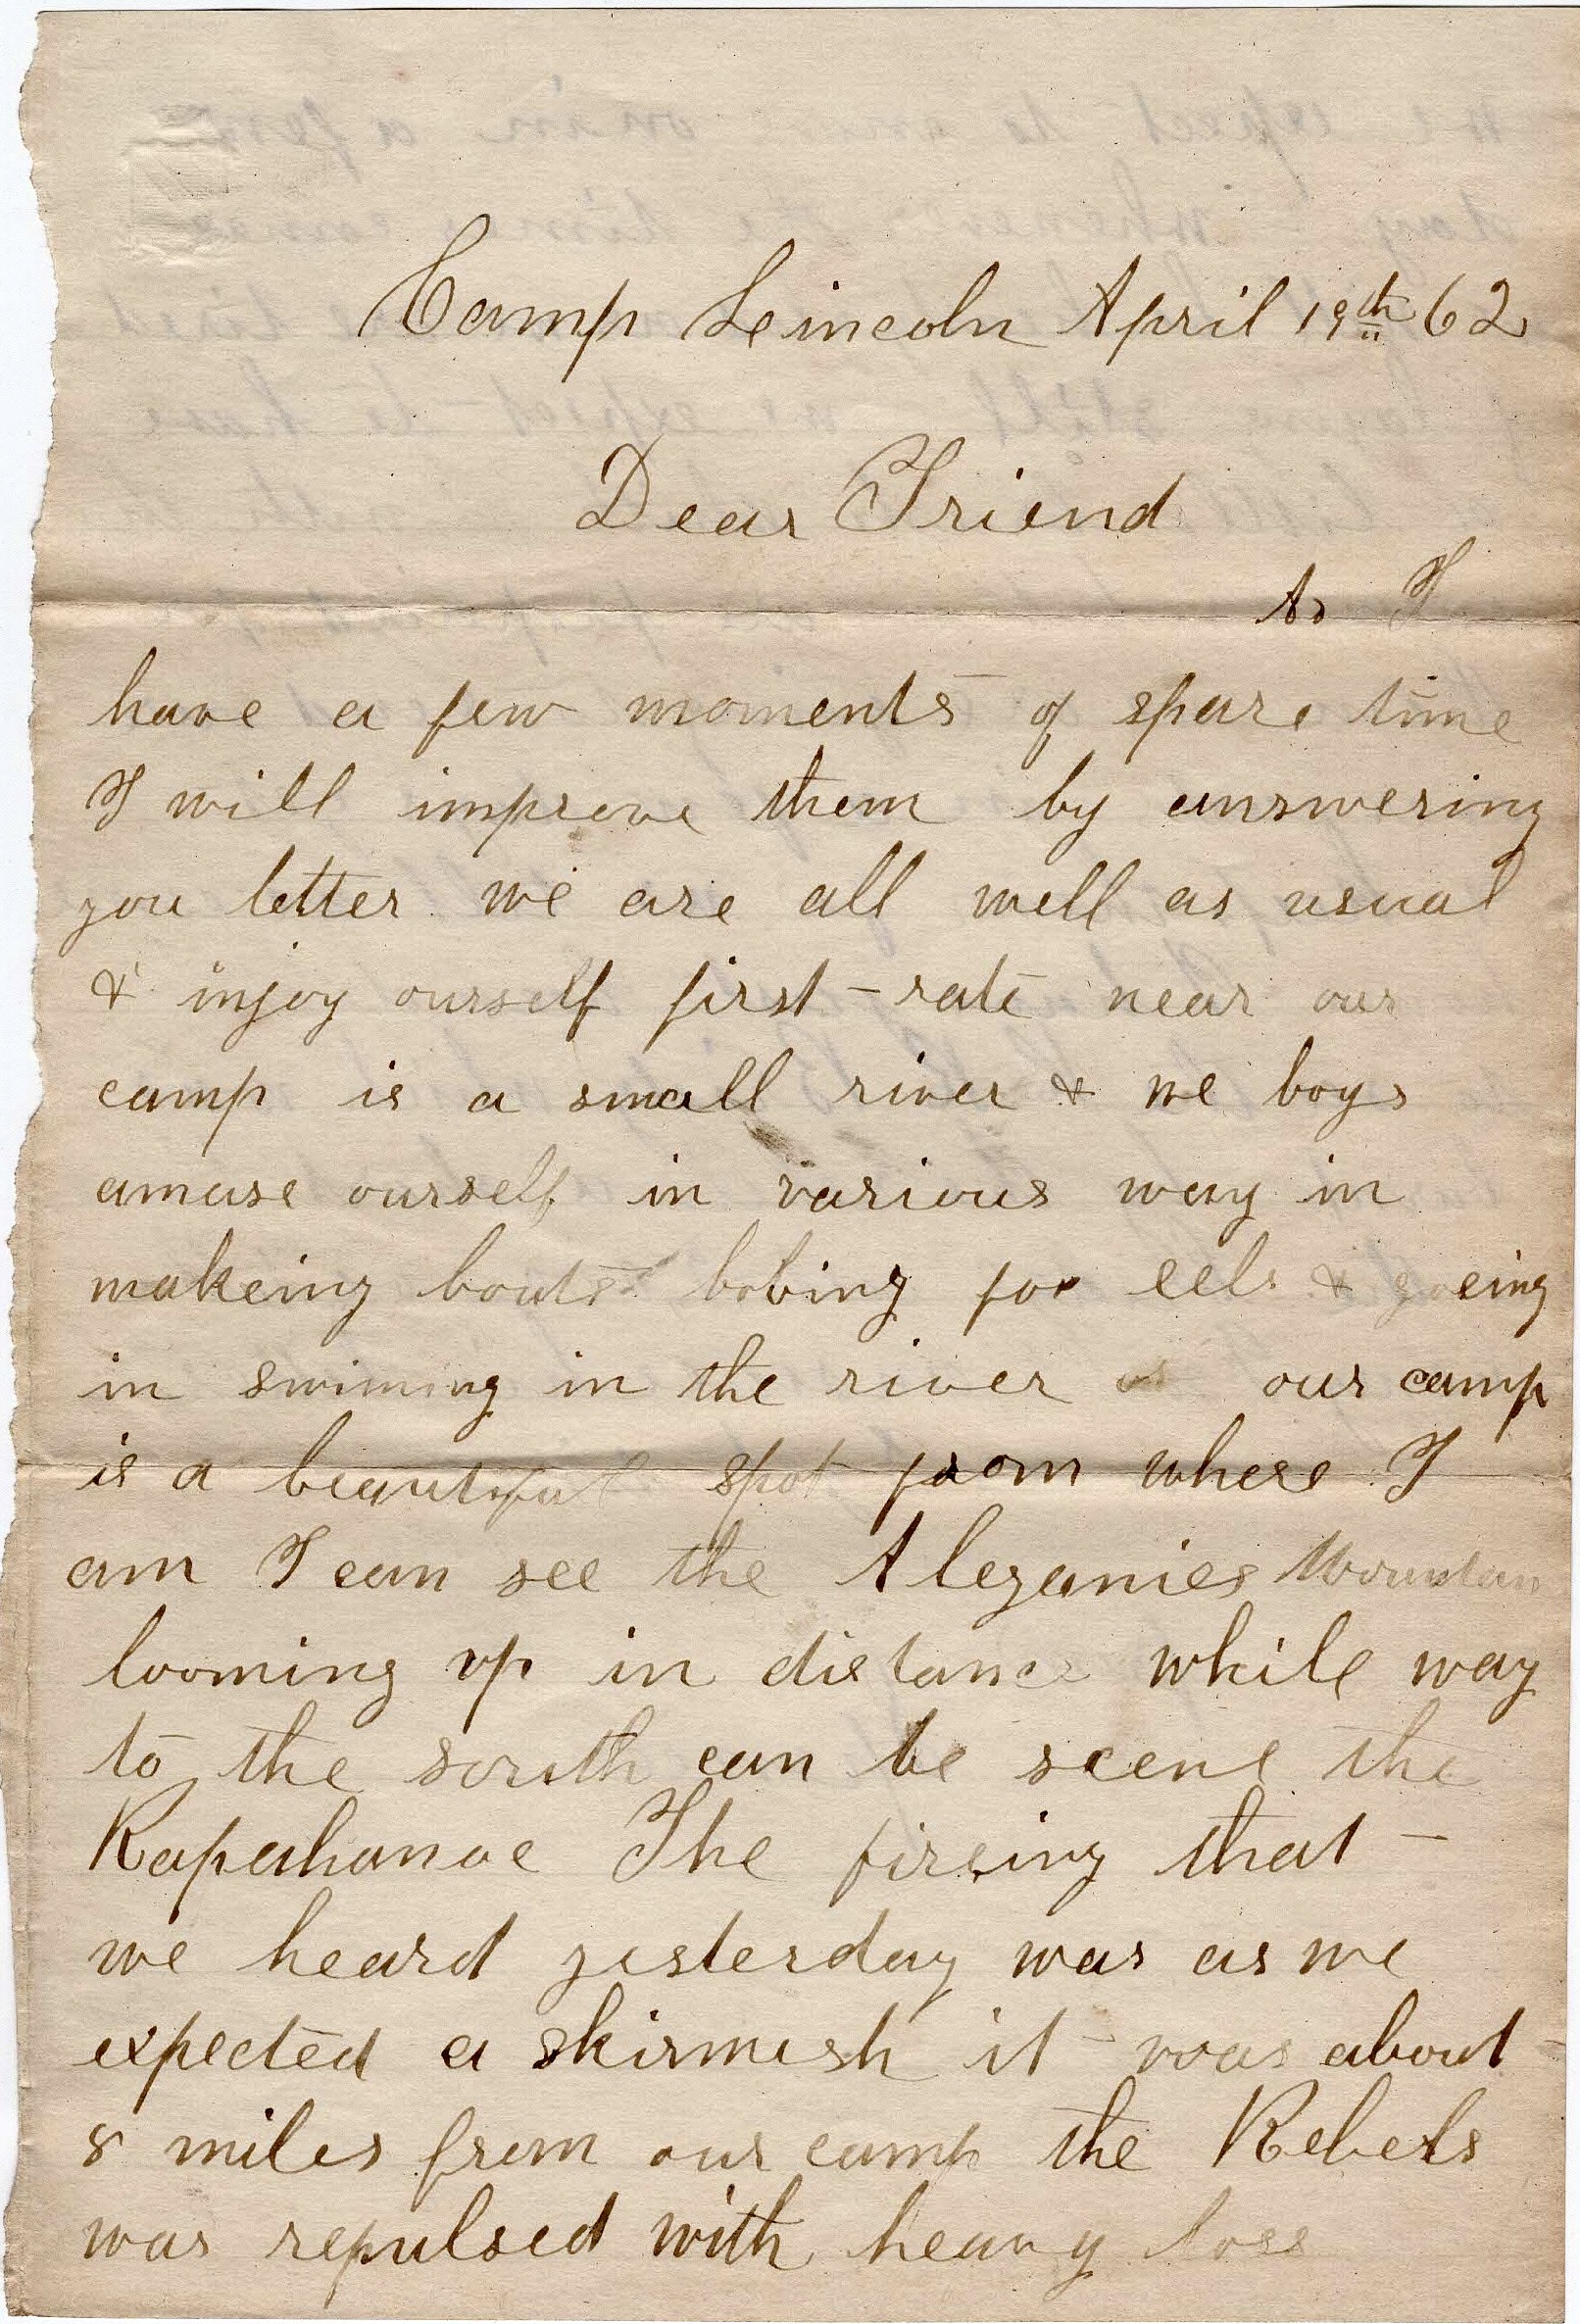 Camp Leincoln April 19th 62
Dear Friend
As I
have a few moments of spare time
I will improve them by answering
you letter we are all well as usual
& injoy ourself first-rate near our
camp is a small river & we boys
amuse ourself in various way in
makeing bouts bobing for eels & goeing
in swiming in the river our camp
is a beautiful spot from where I
am I can see the Aleganies Mountan
looming up in distance while way
to the south can be scene the
Rapahanoe The fireing that
we heard yesterday was as we
expected a skirmesh it was about
8 miles from our camp the Rebels
was repulsed with heavy loss